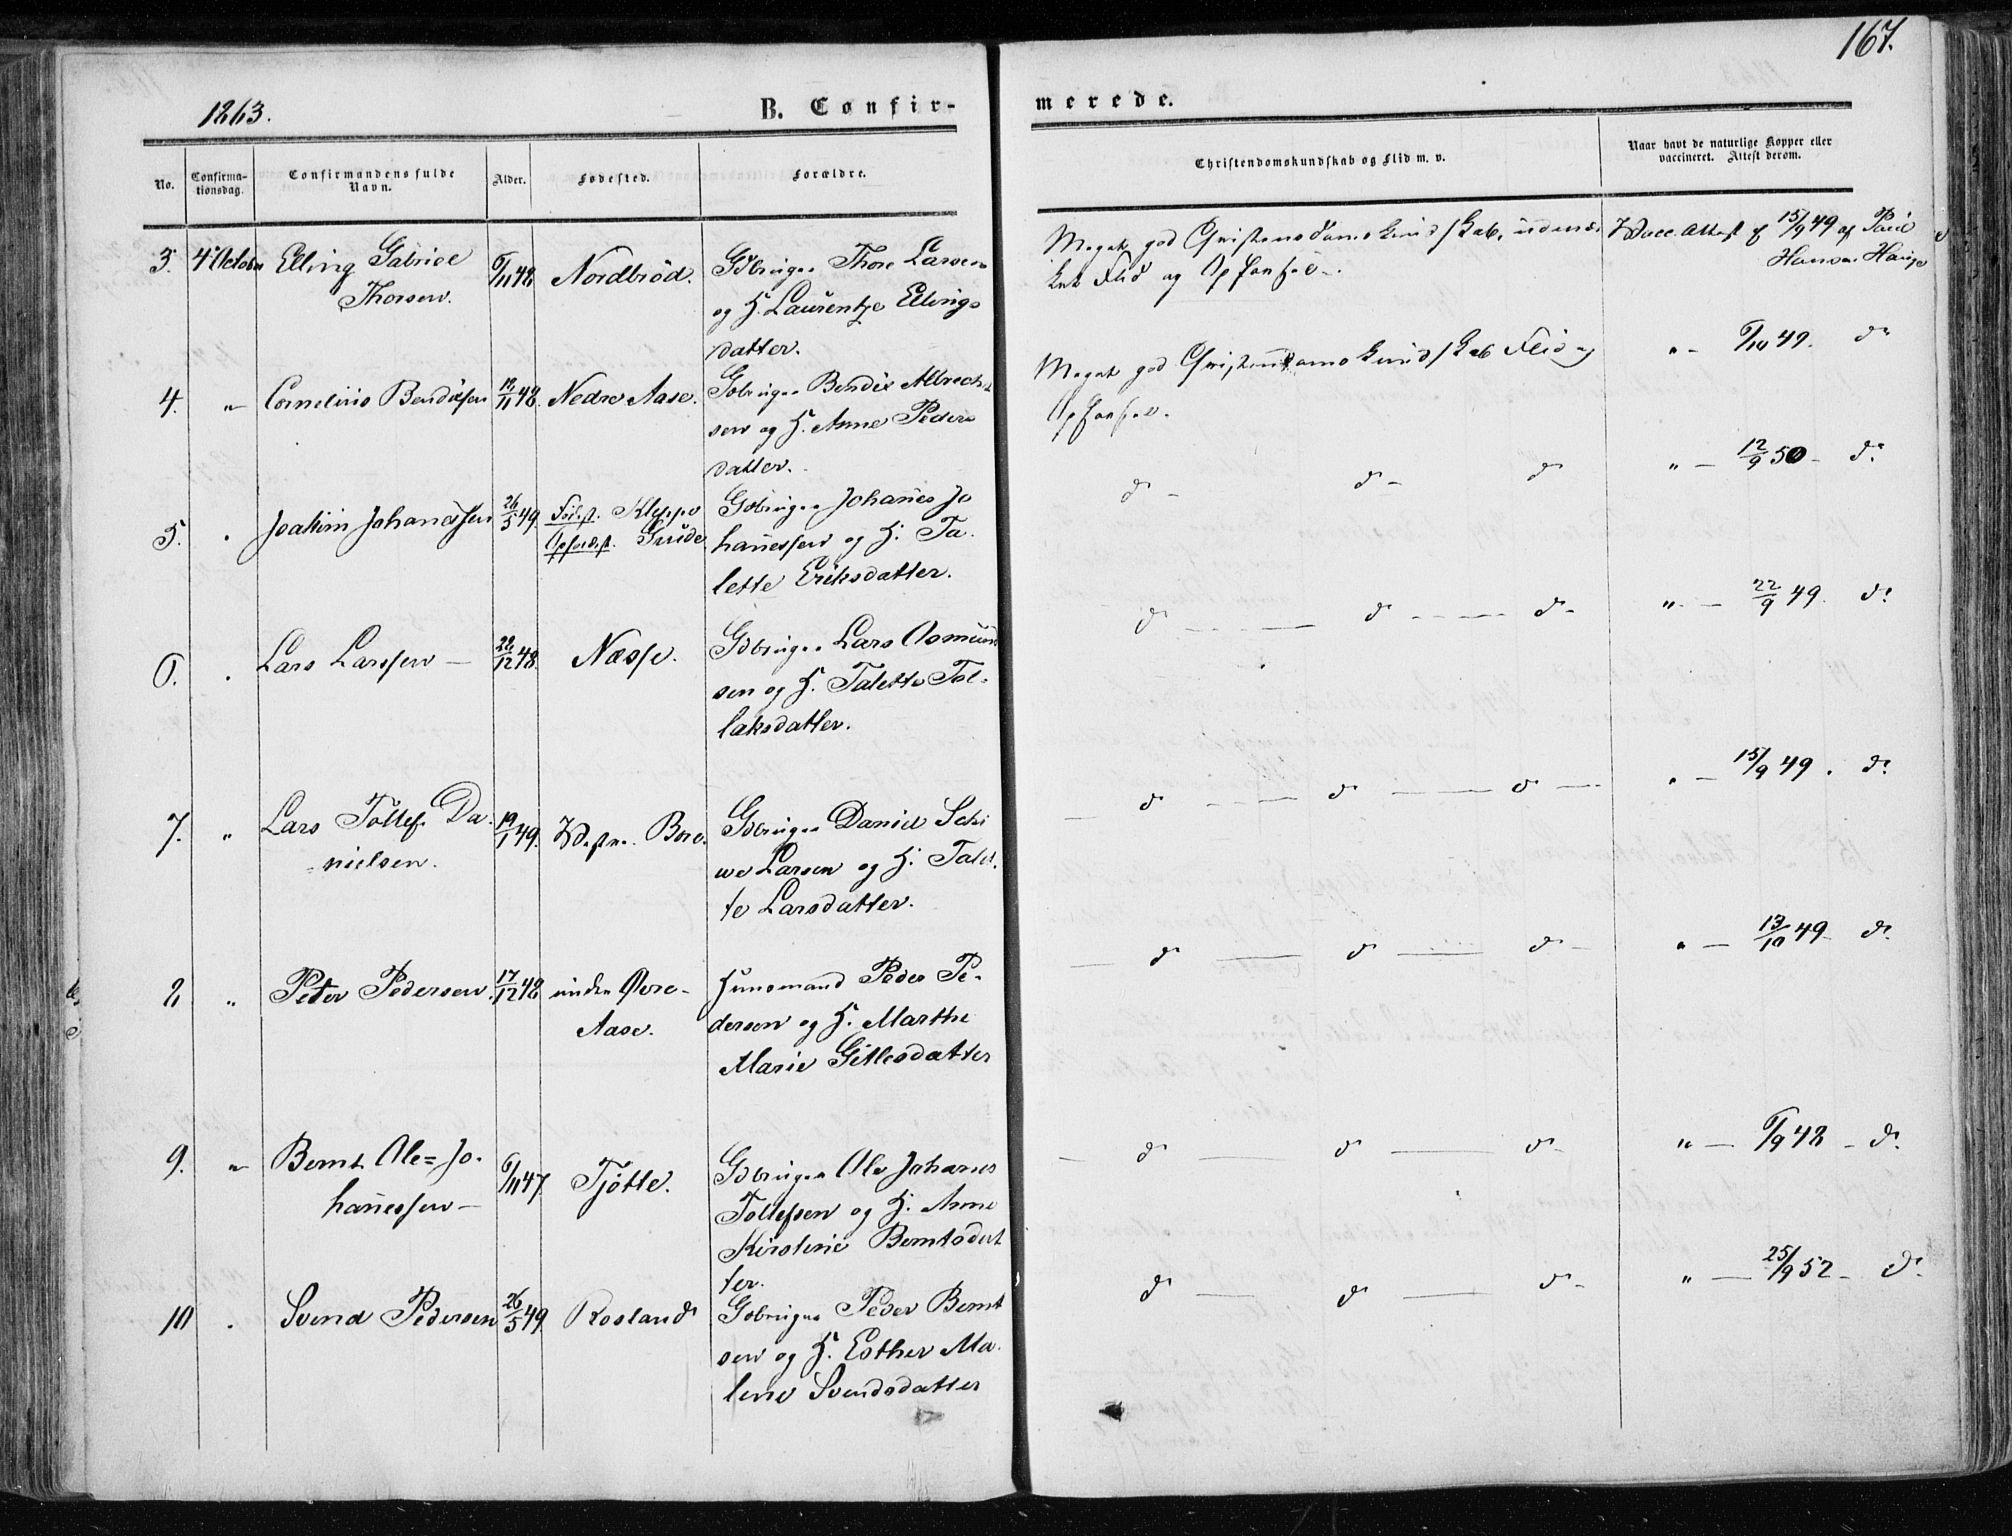 167.
1863.
B. Confir-
merede.
No.
Confirma-
tionsdag.
Confirmandens fulde
Navn.
Alder.
Fødested.
Forældre.
Christendomskundskab og Flid m. v.
Naar havt de naturlige Kopper eller
vaccineret. Attest derom.
3. 4 October Elling Gabriel 6/11 48 Nordbröd. Gdbruger Thore Larsen
Thorsen. og H. Laurentze Ellings
datter.
Meget god Christendomskundskab, udmær
ket Flid og Opførsel.
Vacc. Attest af 15/9 49 af Paul
Hansen Hauge
4. " Cornelius Bendixsen 18/11 48. Nedre Aase. Gdbruger Bendix Albrecht
sen og H. Anne Peders
datter.
Meget god Christendomskundskab Flid og
Opførsel.
" - 6/10 49. do
5. " Joakim Johannessen 26/5 49. Föd.st. Kleppe Gdbruger Johanes Jo
Opfost.st. Grude hanessen og H. Ta
lette Eriksdatter.
do - do - do " - 12/9 50 - do
6. " Lars Larssen - 22/12 48. Næsse. Gdbruger Lars Asmund
sen og H. Talette Tol-
laksdatter.
do - do - do - " - 22/9 49. do
7. " Lars Tollef Da- 19/1 49. Vestre Bore. Gdbruger Daniel Schi
nielsen. we Larsen og H. Talet-
te Larsdatter.
do - do - do - " - 15/9 49. do
8. " Peter Pedersen. 17/12 48 under Övre- Huusmand Peder Pe-
Aase. dersen og H. Marthe
Marie Gitlesdatter
do - do - do - " - 13/10 49 - do
9. " Bernt Ole = Jo- 6/11 47. Tjötte. Gdbruger Ole Johanes
hanessen - Tollefsen og H. Anne
Kirstine Berntsdat
ter.
do - do - do - " - 6/9 48 - do
10 " Svend Pedersen 26/5 49 Rosland Gdbruger Peder Bernt
sen og H. Esther Ma-
lene Svendsdatter
do - do - do - " - 25/9 52 - do